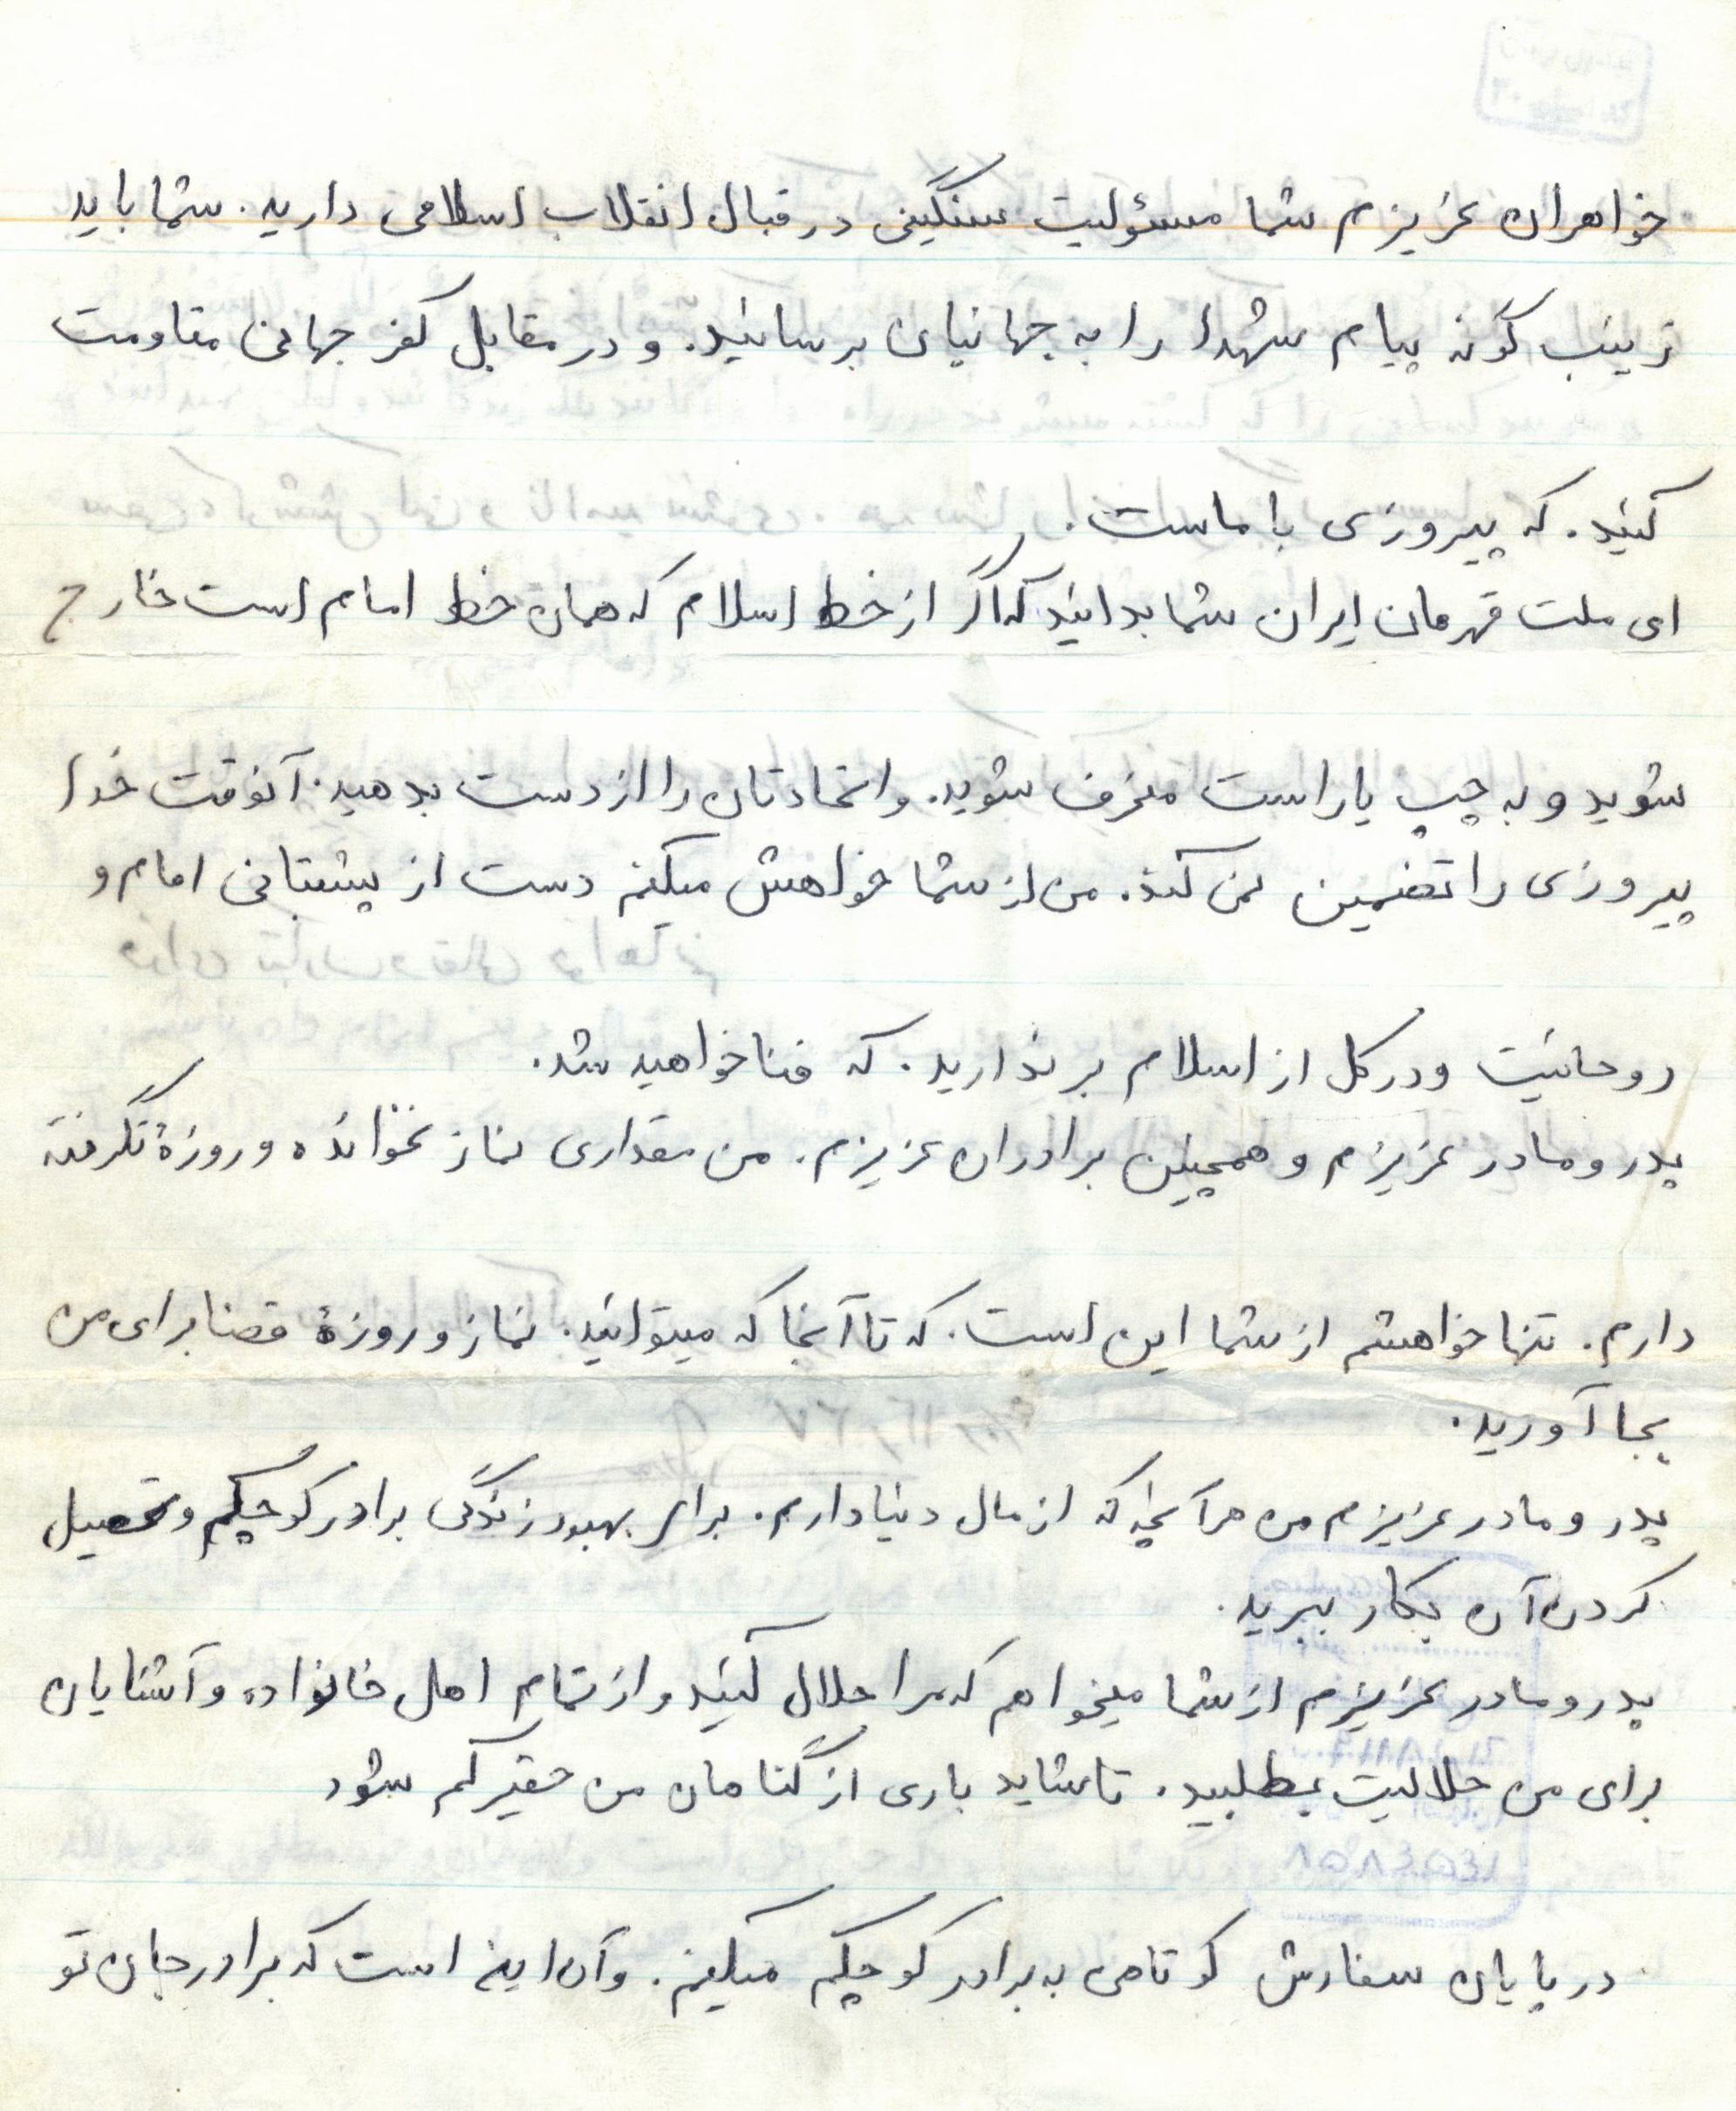 خواهران عزیزم شما مسئولیت سنگینی در قبال انقلاب اسلامی دارید. شما باید
زینب گونه پیام شهدا را به جهانیان برسانید. و در مقابل کفر جهانی مقاومت
کنید. که پیروزی با ماست.
ای ملت قهرمان ایران شما بدانید که اگر از خط اسلام که همان خط امام است خارج
شوید و به چپ یا راست منحرف شوید. و اتحادتان را از دست بدهید. آنوقت خدا
پیروزی را تضمین نمی کند. من از شما خواهش میکنم دست از پشتبانی امام و
روحانیت و در کل از اسلام بر ندارید. که فنا خواهید شد.
پدر و مادر عزیزم و همچنین برادران عزیزم. من مقداری نماز نخوانده و روزۀ نگرفته
دارم. تنها خواهشم از شما این است. که تا آنجا که میتوانید. نماز و روزۀ قضا برای من
بجا آورید.
پدر و مادر عزیزم من هر آنچه که از مال دنیا دارم. برای بهبود زندگی برادر کوچکم و تحصیل
کردن آن بکار ببرید.
پدر و مادر عزیزم از شما میخواهم که مرا حلال کنید و از تمام اهل خانواده و آشنایان
برای من حلالیت بطلبید. تا شاید باری از گناهان من حقیر کم شود
در پایان سفارش کوتاهی به برادر کوچکم میکنم. و آن این است که برادر جان تو